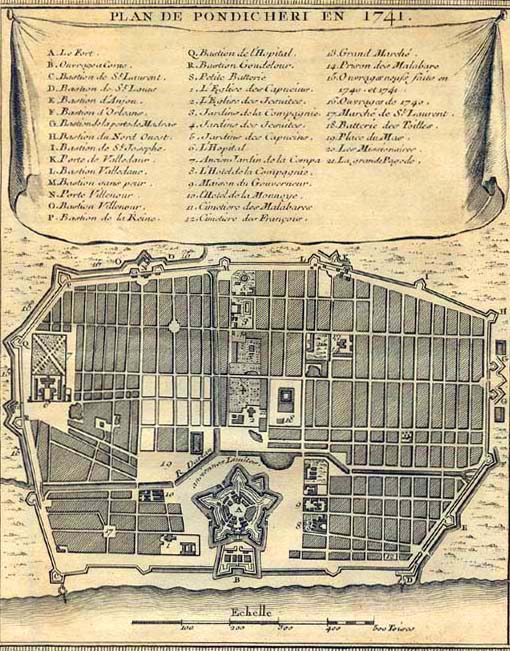 PLAN DE PONDICHERI EN 1741.
A. Le Fort.
B. Ouvrage a Corne.
C. Bastion de St. Laurent.
D. Bastion de St. Louis
E. Bastion d'Anjou.
F. Bastion d'Orleans.
G. Bastion de la porte de Madras
H. Bastion du Nord Ouest.
I. Bastion de St. Josephe.
K. Porte de Valledaur
L. Bastion Valledaur.
M. Bastion sans peur.
N. Porte Villenour
O. Bastion Villenour.
P. Bastion de la Reine.
Q. Bastion de l'Hopital.
R. Bastion Goudelour.
S. Petite Batterie
1. L'Eglise des Capucins.
2. L'Eglise des Jesuites.
3. Jardins de la Compagnie.
4. Jardins des Jesuites.
5. Jardins des Capucins.
6. L'Hopital.
7. Ancien Jardin de la Compa
8. L'Hotel de la Compagnie.
9. Maison du Gouverneur.
10. l'Hotel de la Monnoye.
11. Cimetiere des Malabares
12. Cimetiere des François.
13. Grand Marché.
14. Prison des Malabars
15. Ouvrages neufs faits en
1740. et 1741.
16. Ouvrage de 1740.
17. Marché de St. Laurent.
18. Batterie des Toilles.
19. Place du Mas
20. Les Missionaires
21. La grande Pagode.
Echelle
100 200 300 400 500 Toises